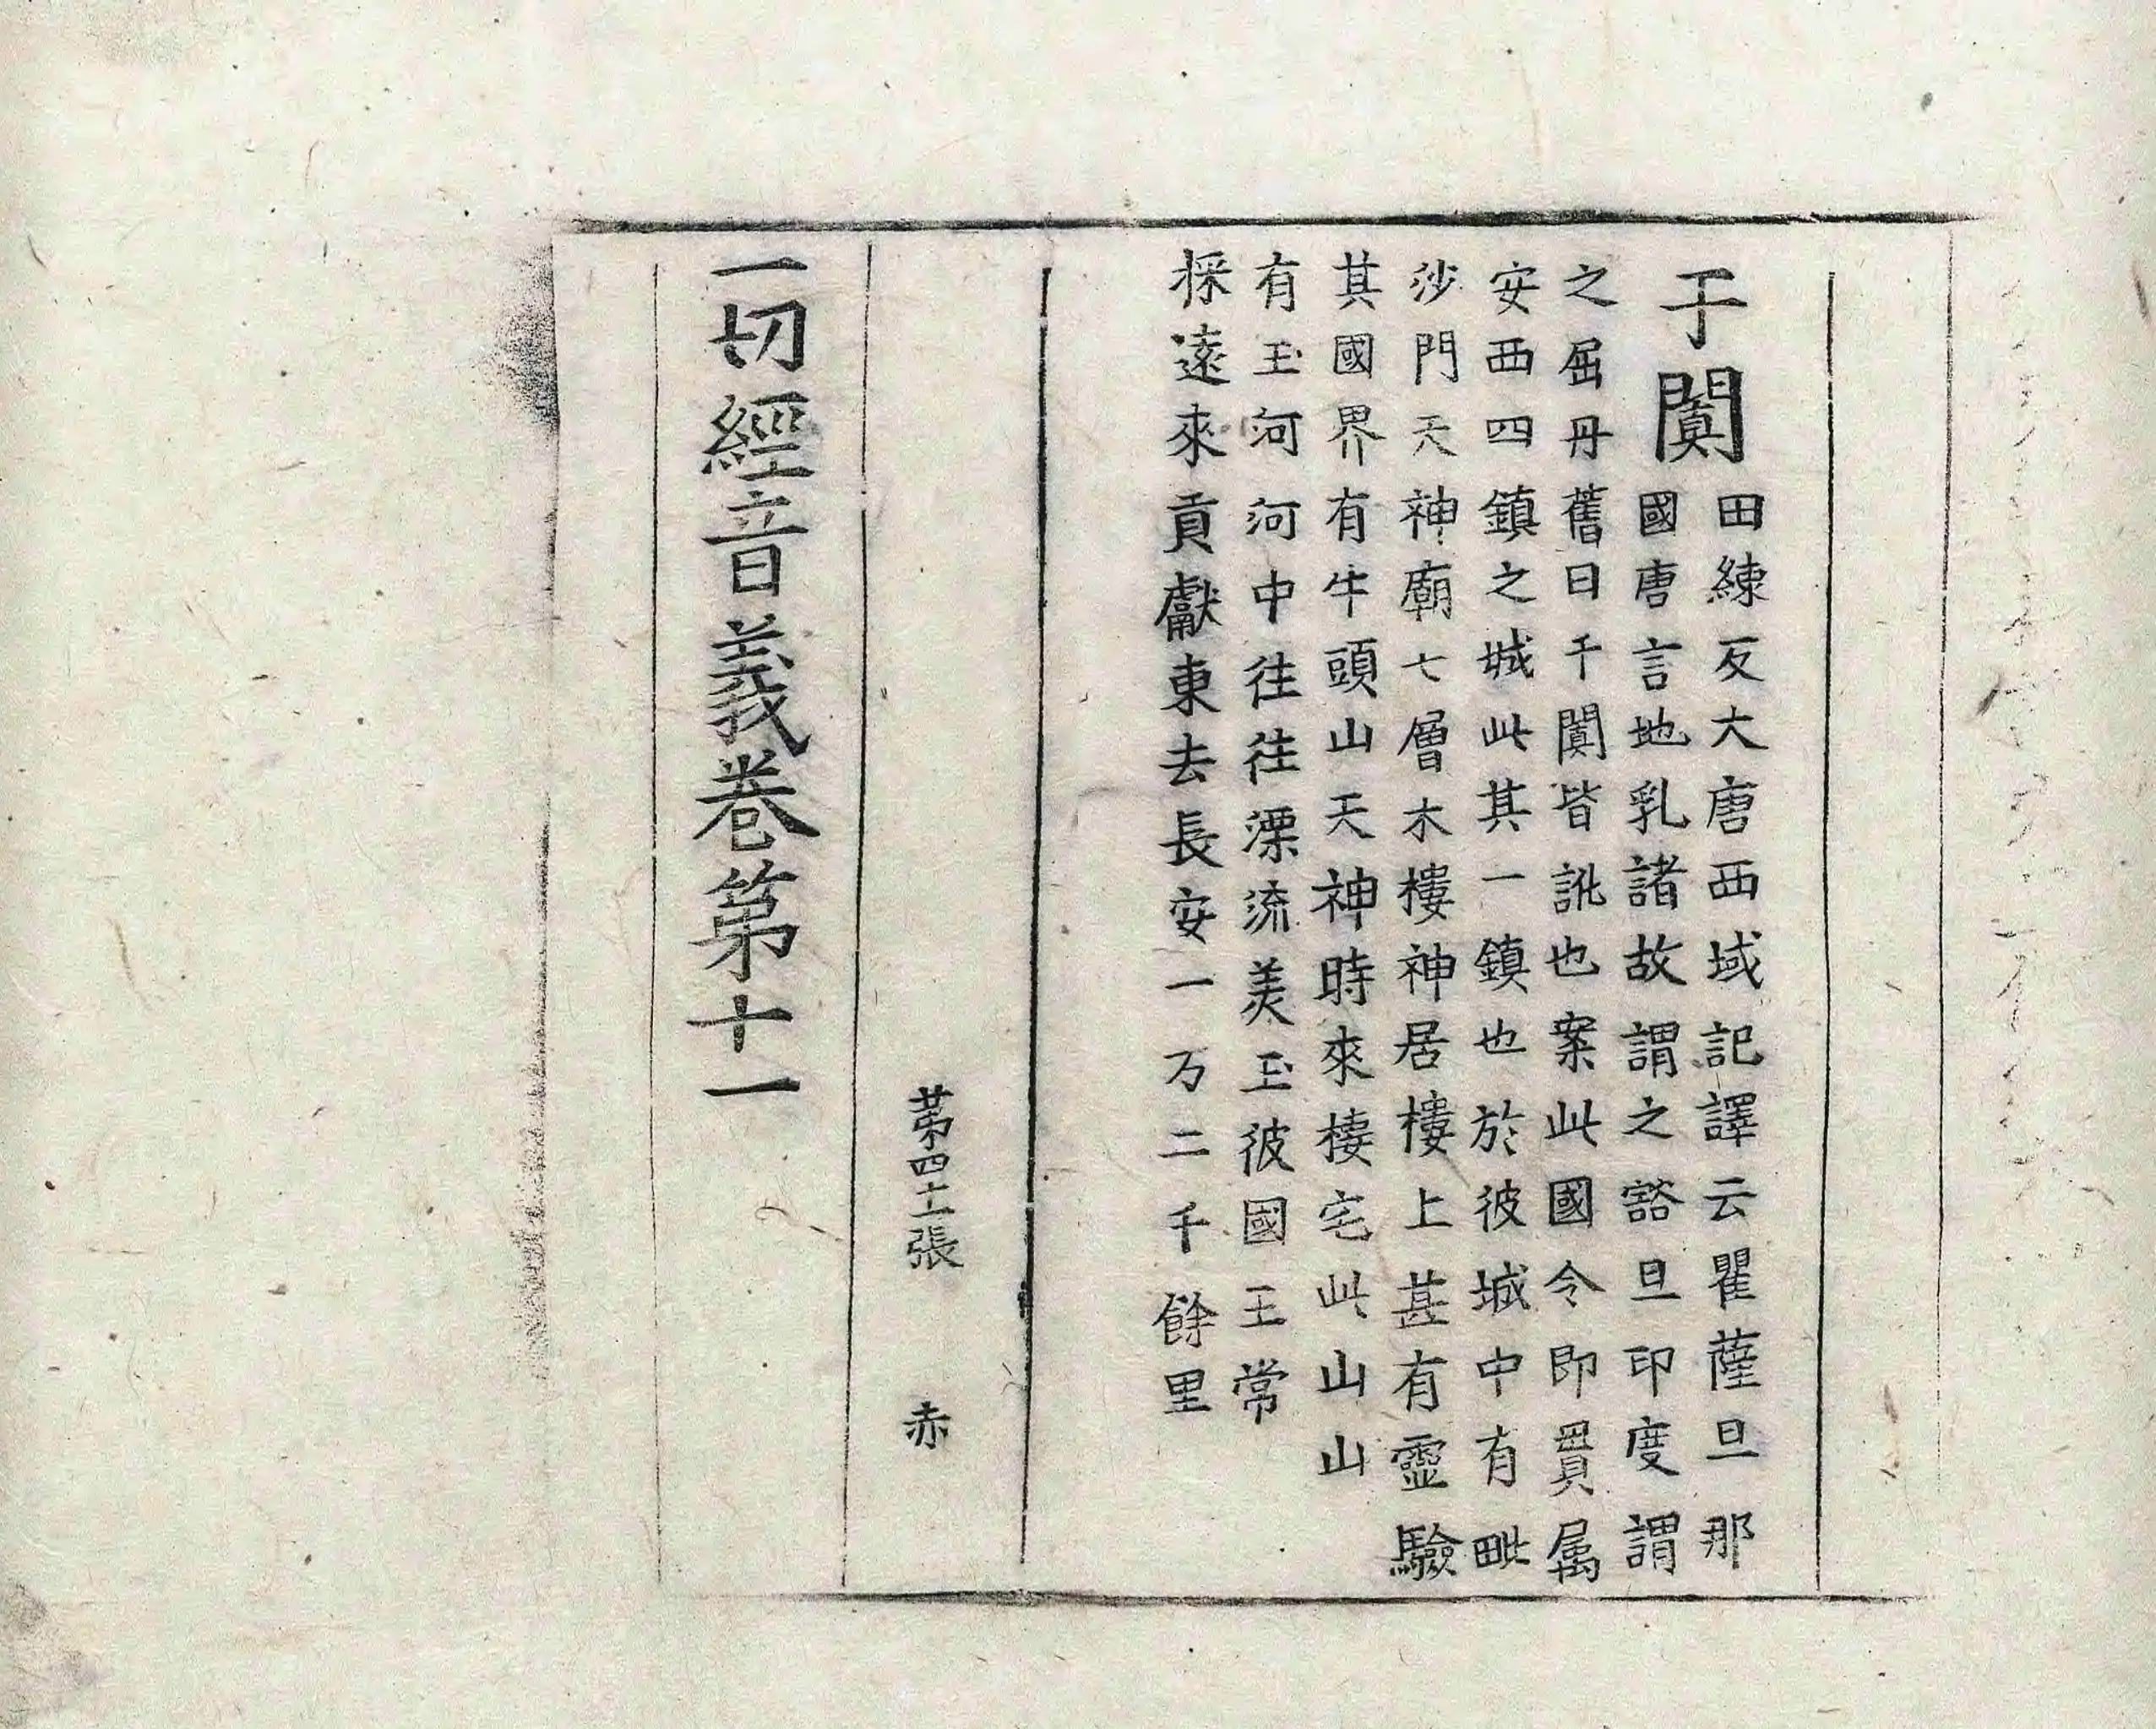 于闐
田練反大唐西域記譯云瞿薩旦那
國唐言地乳諸故謂之谿旦印度謂
之屈丹舊曰千闐皆訛也案此國今即貫属
安西四鎮之城此其一鎮也於彼城中有毗
沙門天神廟七層木樓神居樓上甚有靈驗
其國界有牛頭山天神時來棲宅此山山
有玉河河中往往漂流美玉彼國王常
採遠來貢獻東去長安一万二千餘里
第四十張 赤
一切經音義卷第十一